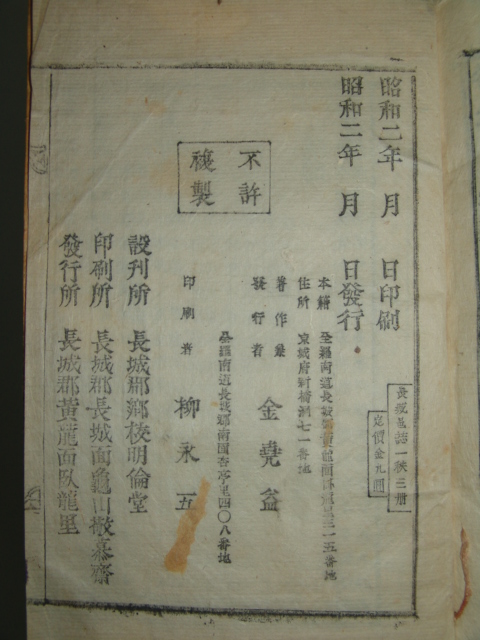 昭和二年 月 日印刷
昭和二年 月 日發行
長城邑誌一秩三册
定價金九圓
不許
複製
本籍 全羅南道長城郡黃龍面臥龍里三一五番地
住所 京城府 七一番地
著作兼
發行者 金堯益
全羅南道長城郡南面杏亭里四〇八番地
印刷者 柳永五
設刋所 長城郡鄉校明倫堂
印刷所 長城郡長城面龜山敬慕齋
發行所 長城郡黃龍面臥龍里